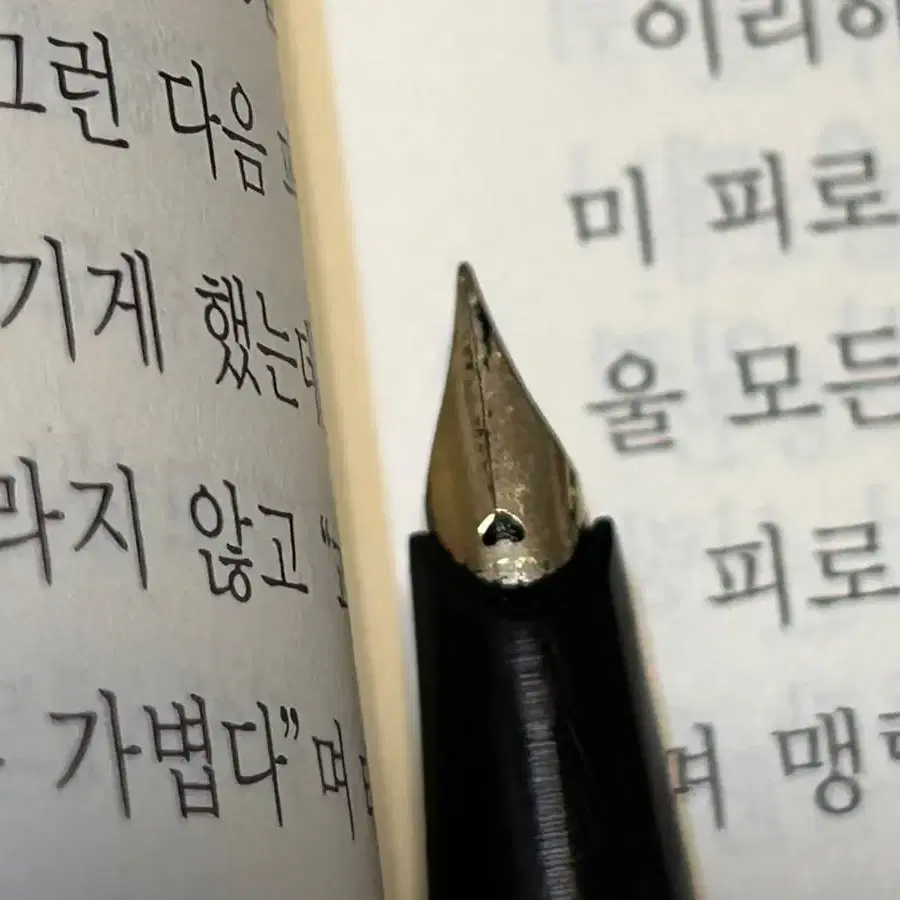 그런 다음
기게 했는데
라지 않고 "
가볍다" 며
이리하
미 피로
울 모든
피로
며 맹